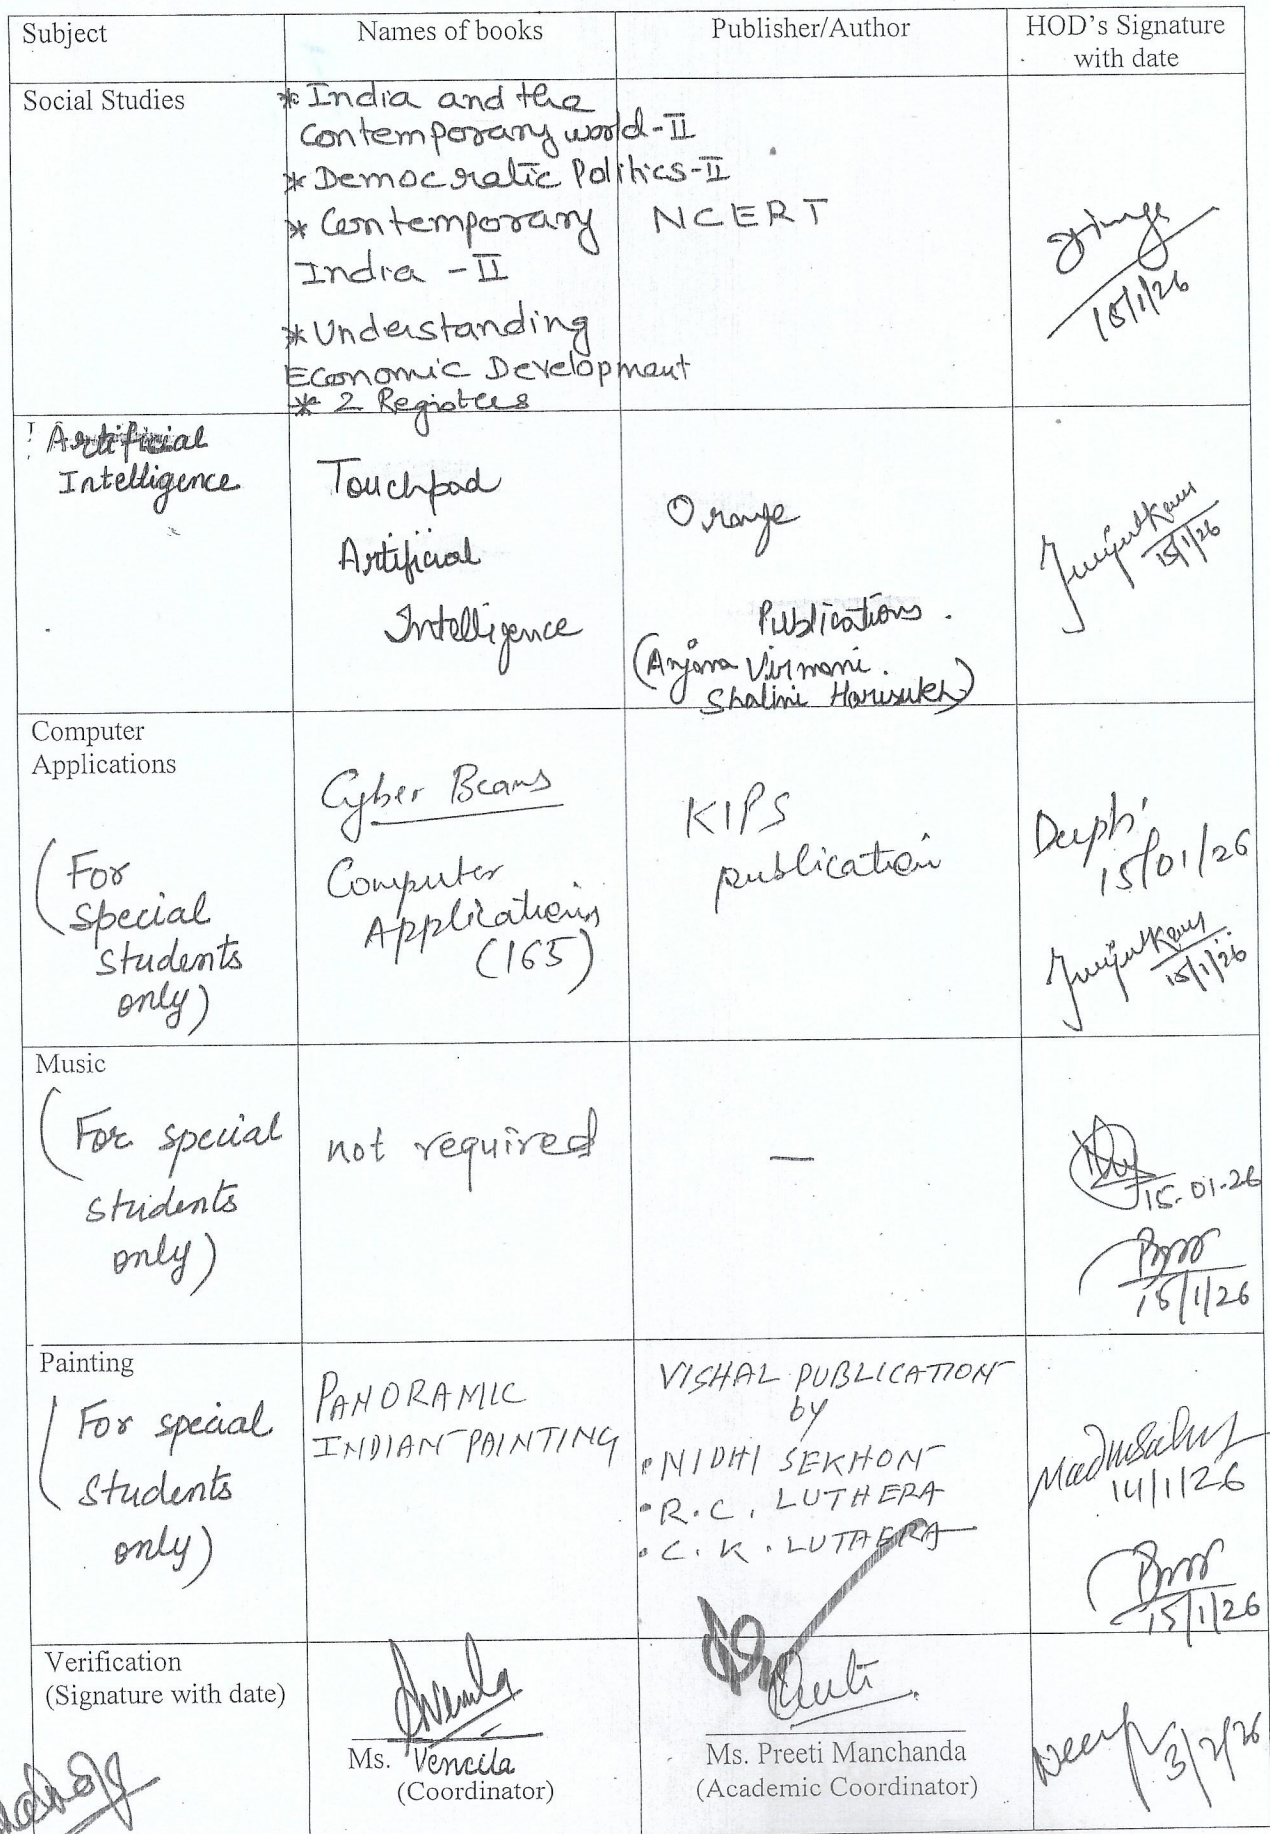 Subject
Names of books
Publisher/Author
HOD's Signature
with date
Social Studies
* India and the
Contemporary world-II
* Democratic Politics-II
* Contemporary
India - II
* Understanding
Economic Development
* 2 Registers
NCERT
15/1/26
Artificial
Intelligence
Touchpad
Artificial
Intelligence
Orange
Publications.
(Anjana Virmani.
Shalini Harisukh)
15/1/26
Computer
Applications
(For
special
students
only)
Cyber Beans
Computer
Applications
(165)
KIPS
publication
15/01/26
15/1/26
Music
(For special
students
only)
not required
—
15.01.26
15/1/26
Painting
(For special
students
only)
PANORAMIC
INDIAN PAINTING
VISHAL PUBLICATION
by
• NIDHI SEKHON
• R.C. LUTHERA
• C.K. LUTHERA
14/1/26
15/1/26
Verification
(Signature with date)
Ms. Vencila
(Coordinator)
Ms. Preeti Manchanda
(Academic Coordinator)
3/2/26